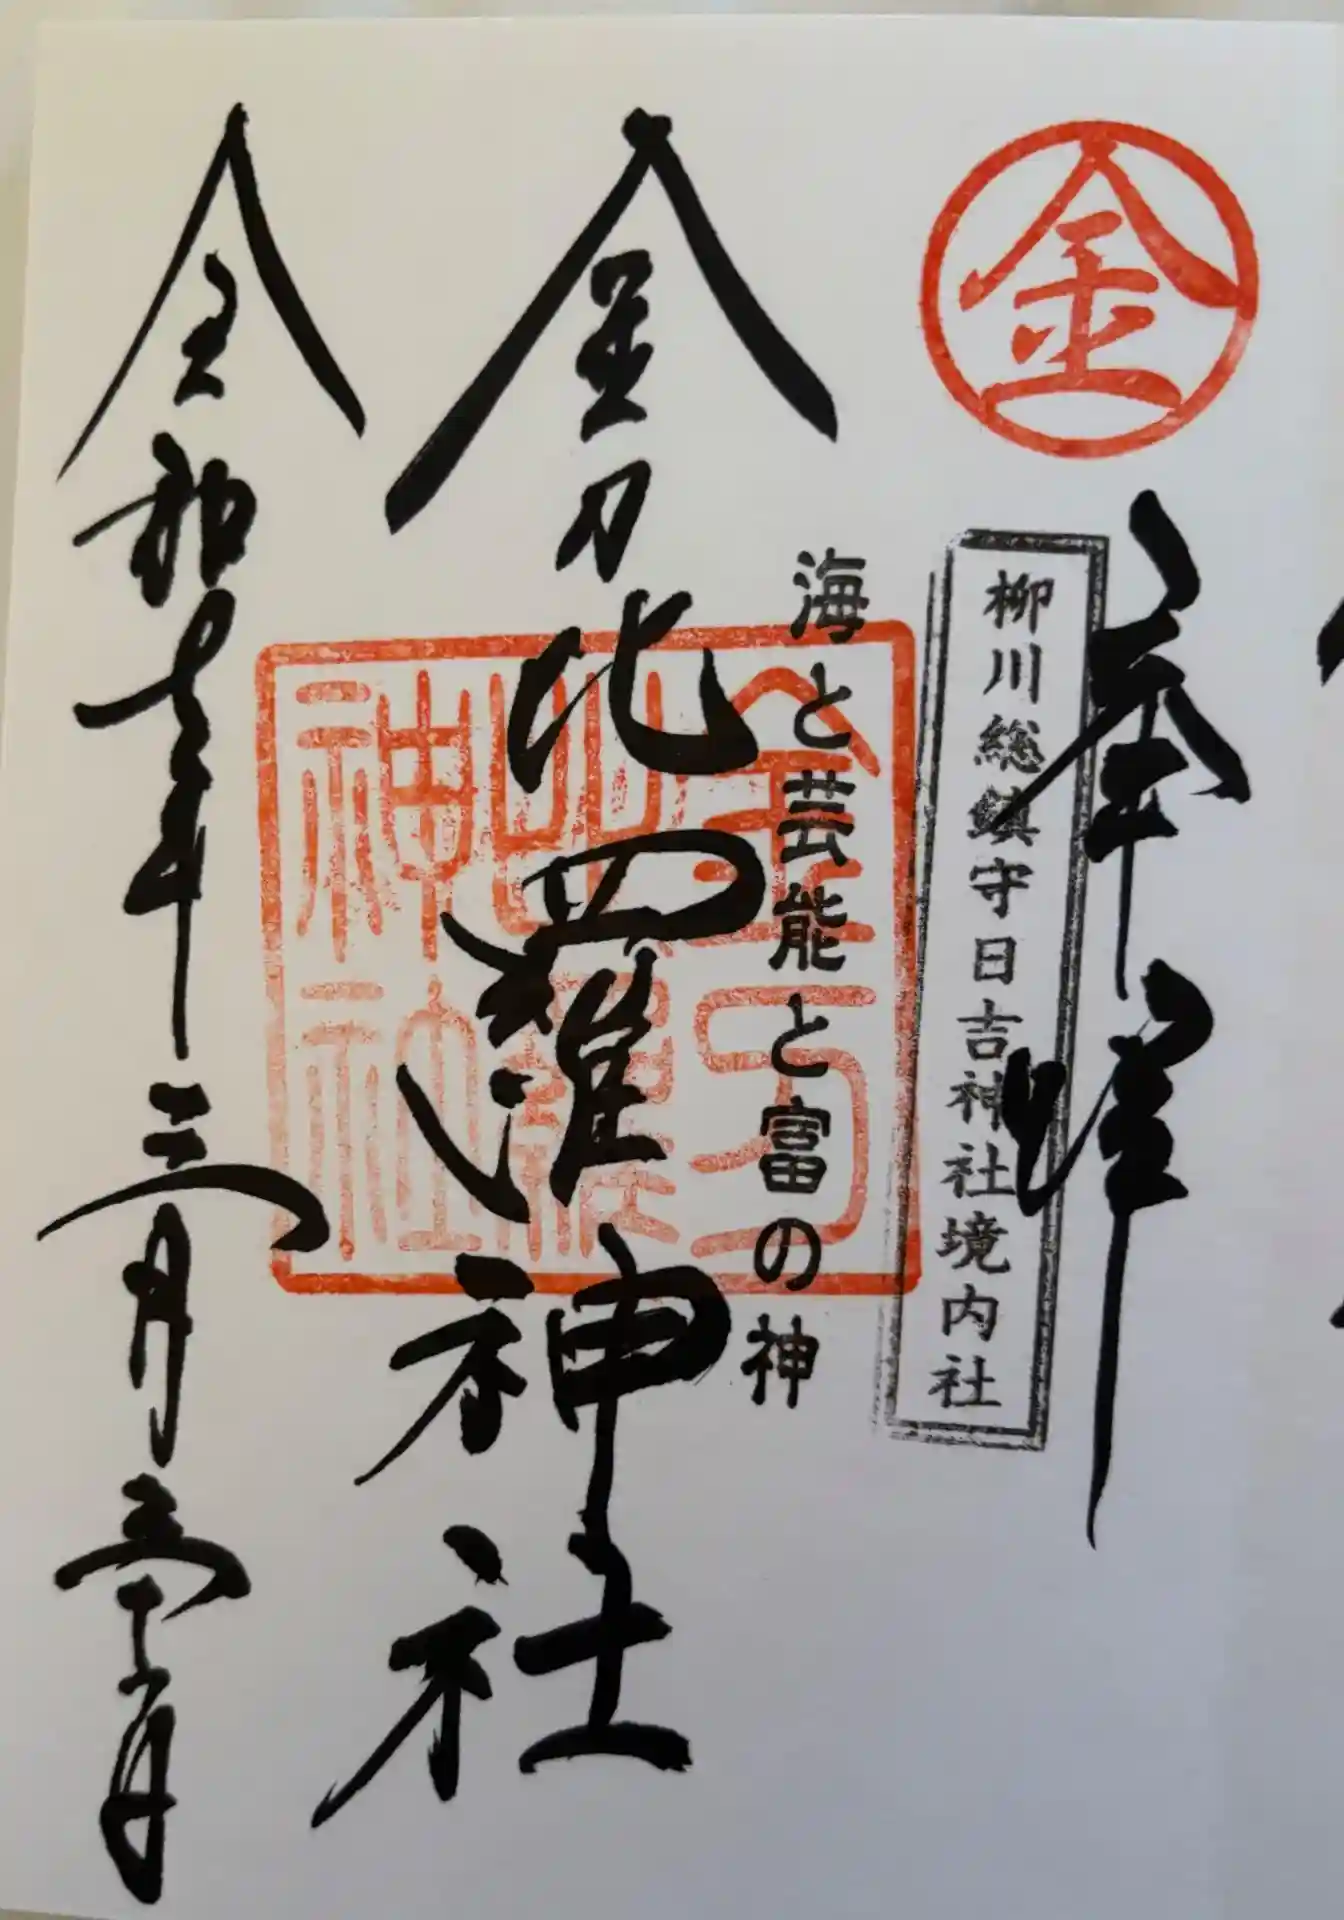 金
奉拝
柳川総鎮守日吉神社境内社
海と芸能と富の神
金刀比羅神社
金刀
比羅
神社
令和年三月日